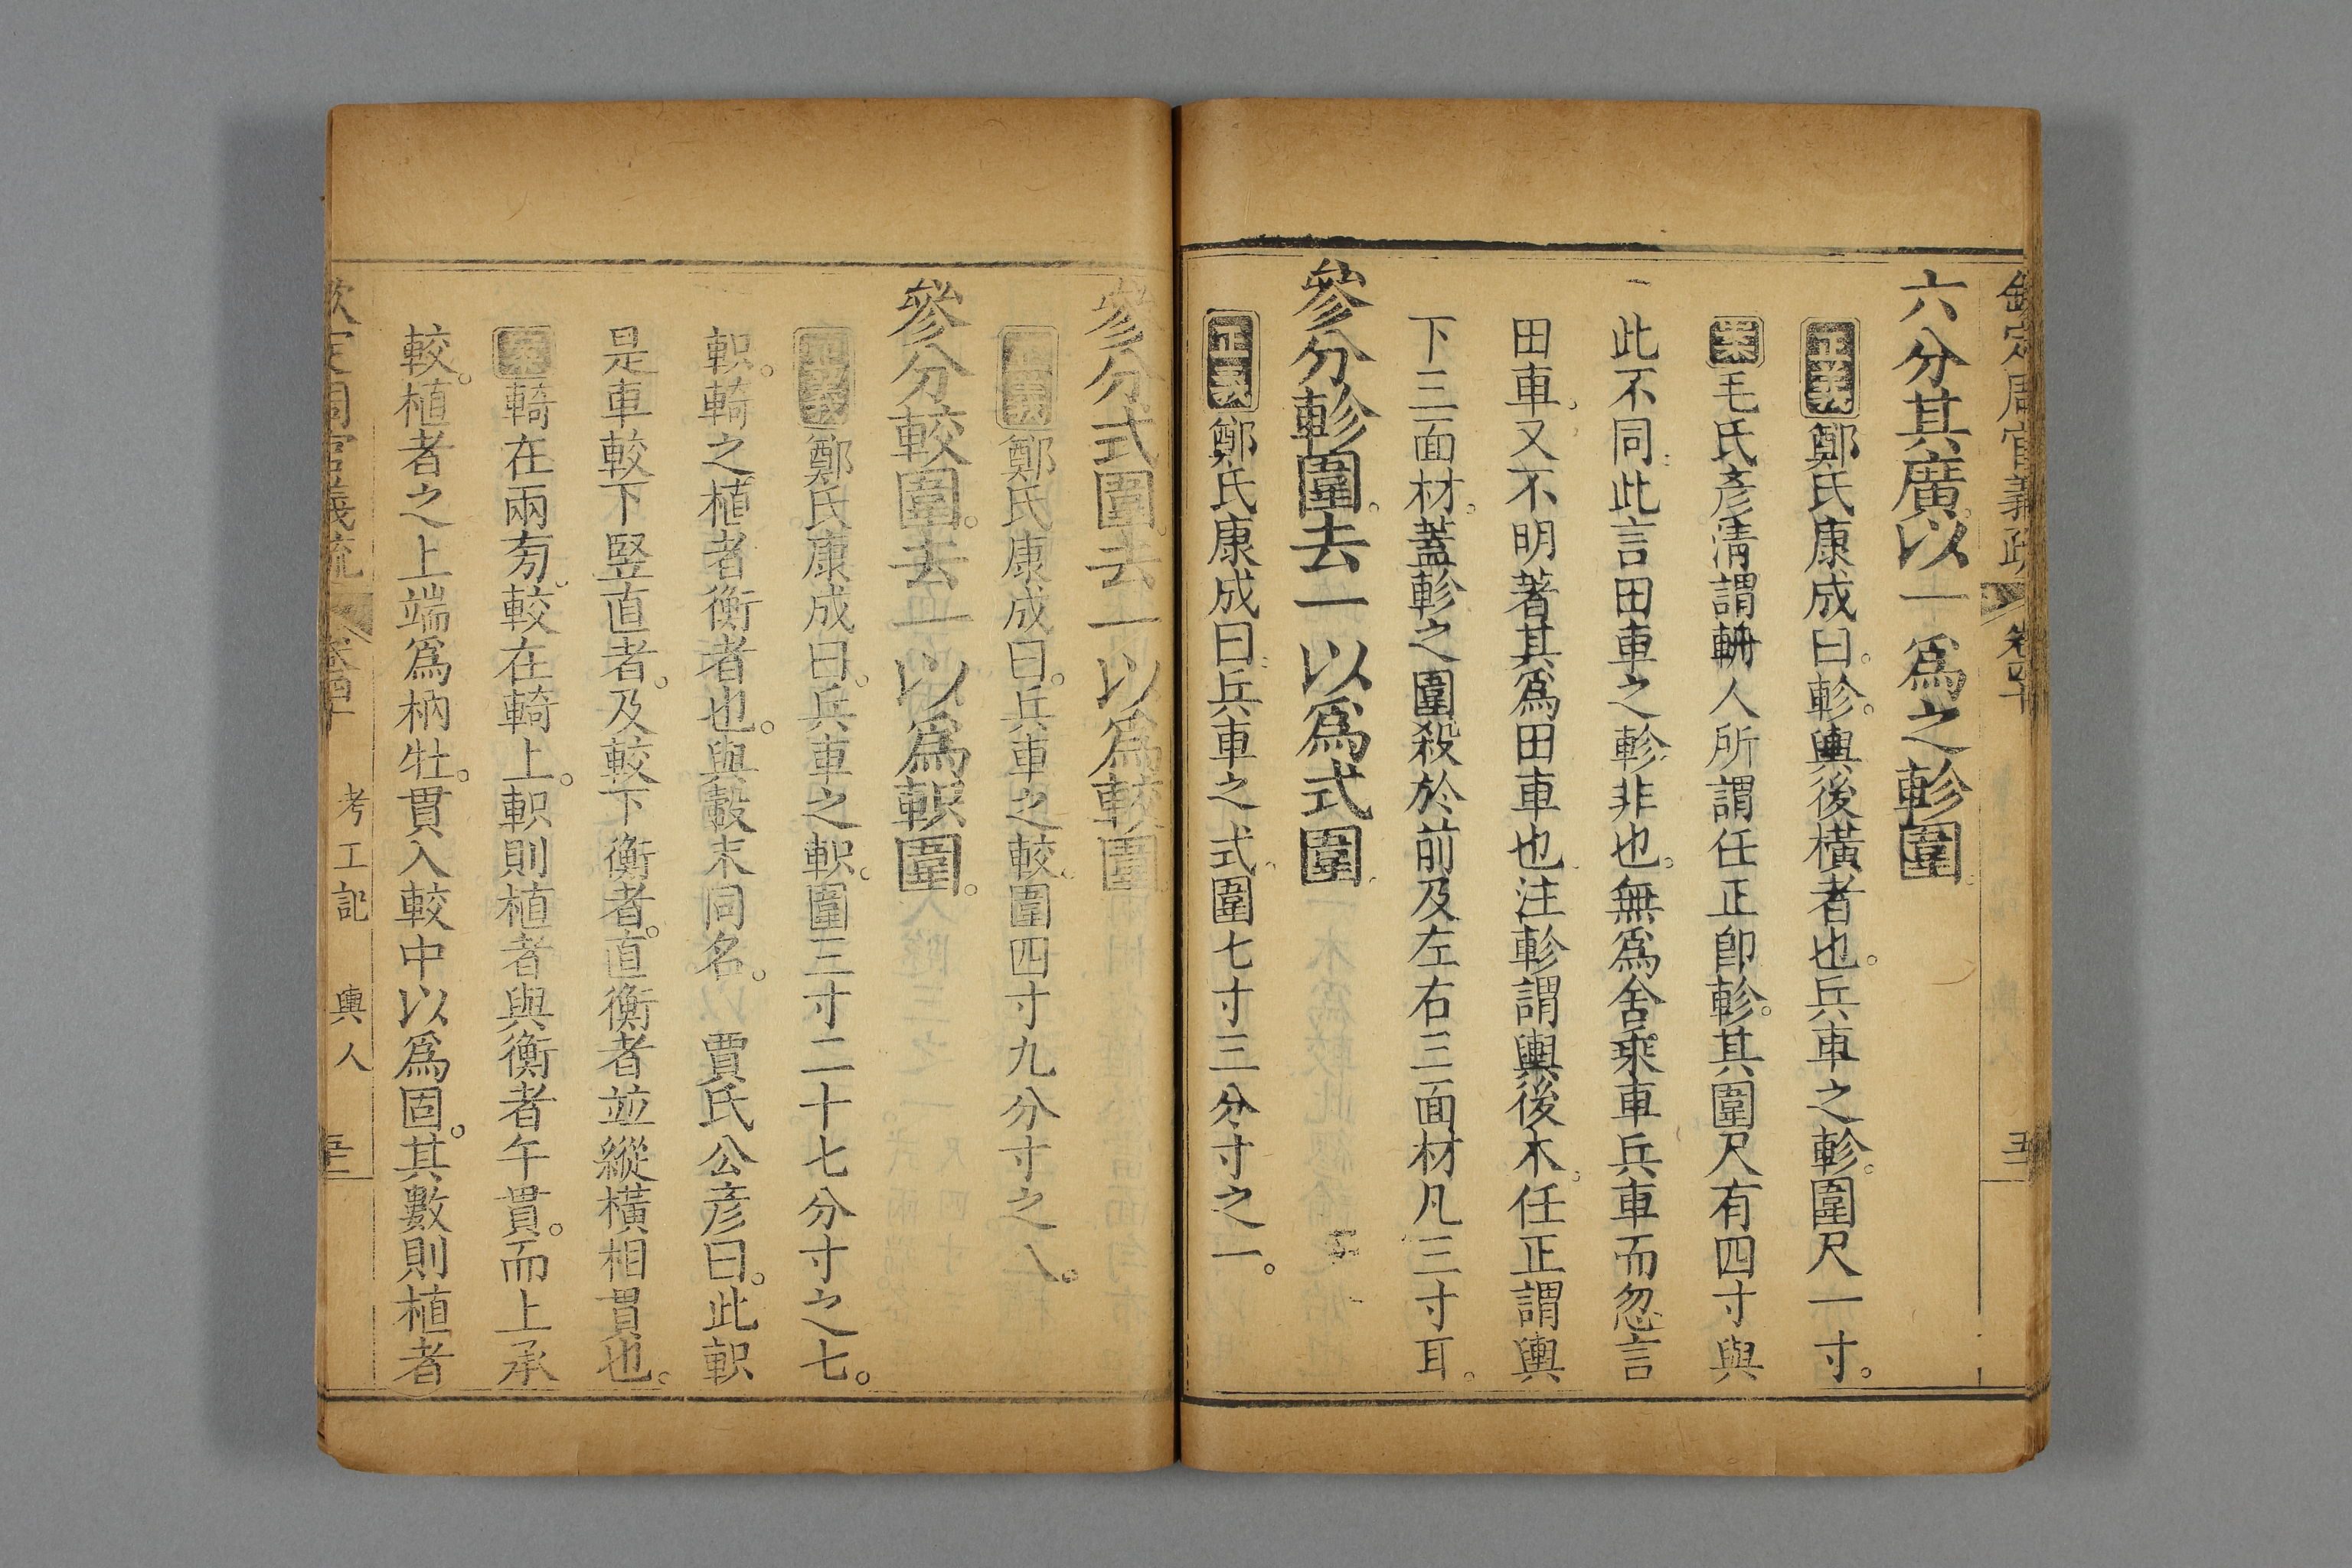 欽定周官義疏 卷四十 五
六分其廣以一爲之軫圍
正義鄭氏康成曰軫輿後橫者也兵車之軫圍尺一寸
案毛氏彥清謂輈人所謂任正卽軫其圍尺有四寸與
此不同此言田車之軫非也無爲舍乘車兵車而忽言
田車又不明著其爲田車也注軫謂輿後木任正謂輿
下三面材蓋軫之圍殺於前及左右三面材凡三寸耳
參分軫圍去一以爲式圍
正義鄭氏康成曰兵車之式圍七寸三分寸之一
參分式圍去一以爲較圍
正義鄭氏康成曰兵車之較圍四寸九分寸之八
參分較圍去一以爲軹圍
正義鄭氏康成曰兵車之軹圍三寸二十七分寸之七
軹輢之植者衡者也與轂末同名 賈氏公彥曰此軹
是車較下竪直者及較下衡者直衡者並縱橫相貫也
案輢在兩旁較在輢上軹則植者與衡者午貫而上承
較植者之上端爲枘牡貫入較中以爲固其數則植者
欽定周官義疏 卷四十 考工記 輿人 五